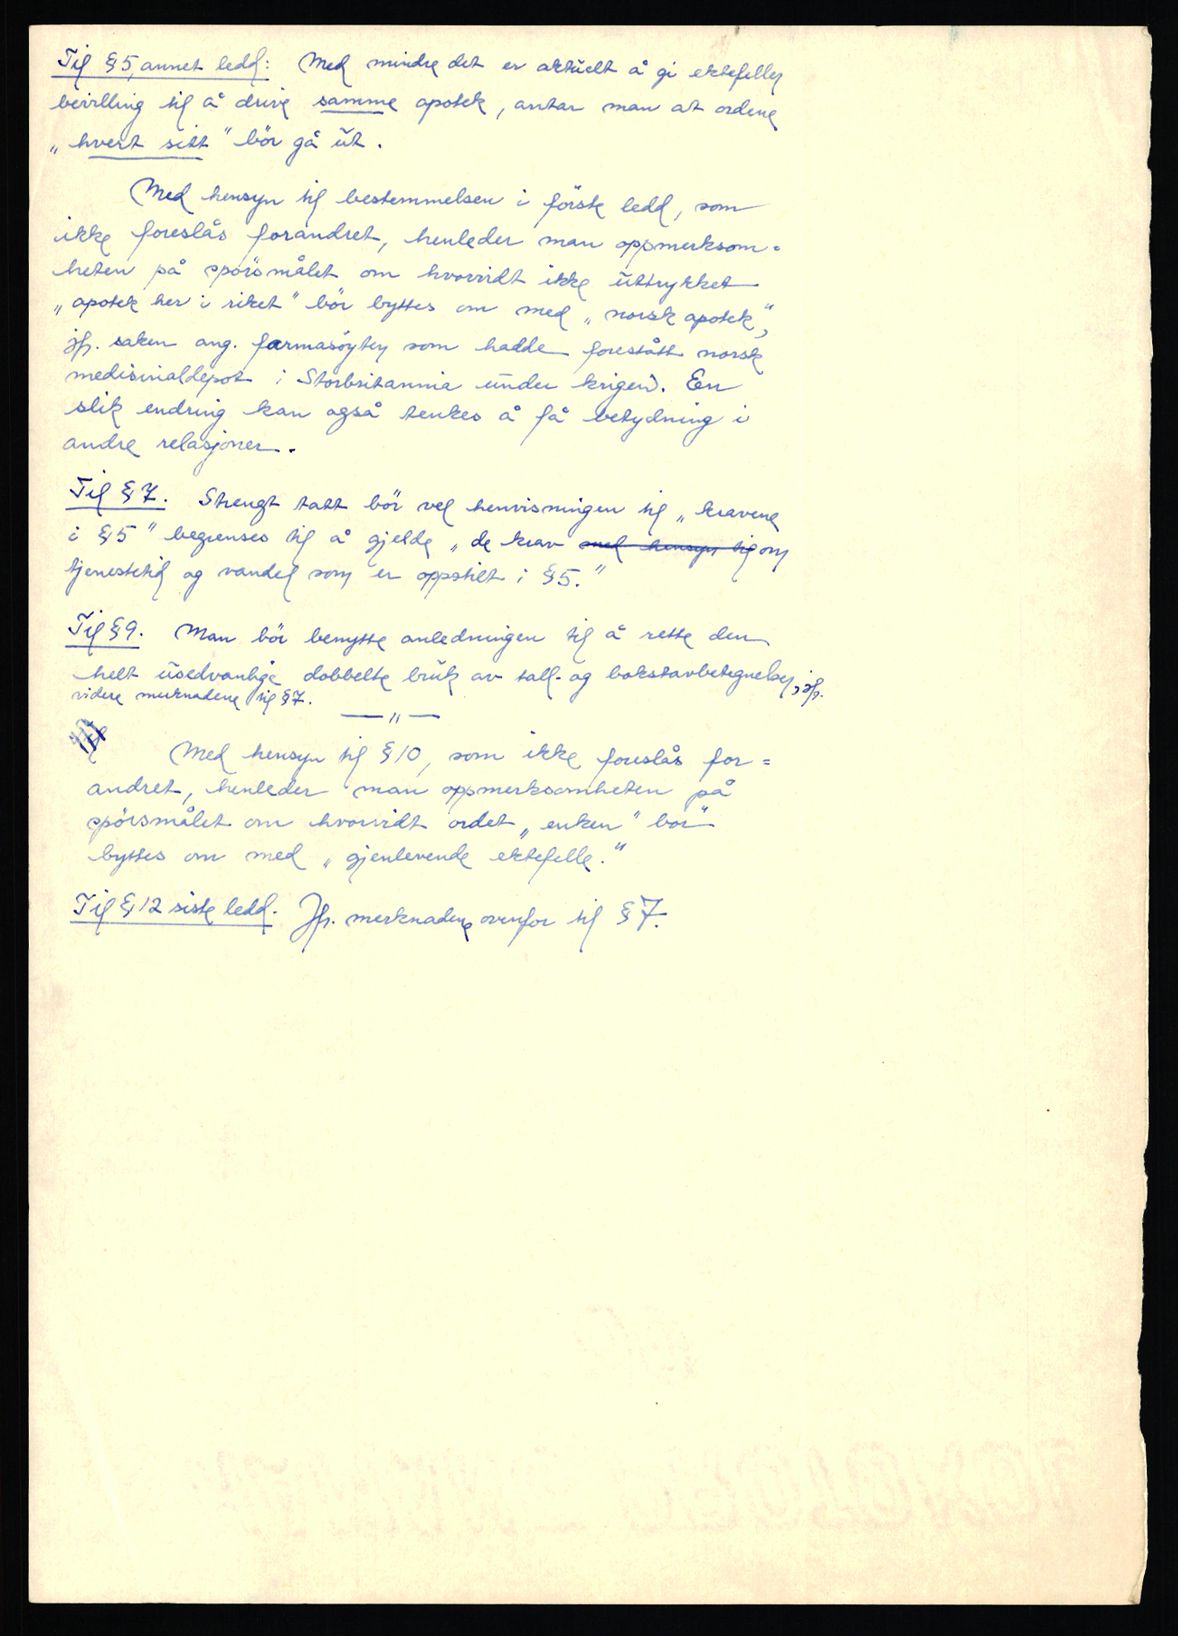 Til § 5, annet ledd: Med mindre det er aktuelt å gi ektefeller
bevilling til å drive samme apotek, antar man at ordene
„hvert sitt" bör gå ut.
Med hensyn til bestemmelsen i förste ledd, som
ikke foreslås forandret, henleder man oppmerksom=
heten på spörsmålet om hvorvidt ikke uttrykket
„apotek her i riket" bör byttes om med „norsk apotek",
jfr. saken ang. farmasöyten som hadde forestått norsk
medisinaldepot i Storbritannia under krigen. En
slik endring kan også tenkes å få betydning i
andre relasjoner.
Til § 7. Strengt tatt bör vel henvisningen til „kravene
i § 5" begrenses til å gjelde „de krav med hensyn til om
tjenestetid og vandel som er oppstilt i § 5."
Til § 9. Man bör benytte anledningen til å rette den
helt usedvanlige dobbelte bruk av tall- og bokstavbetegnelser, jfr.
videre merknadene til § 7.
— " —
Med hensyn til § 10, som ikke foreslås for=
andret, henleder man oppmerksomheten på
spörsmålet om hvorvidt ordet „enken" bör
byttes om med „gjenlevende ektefelle."
Til § 12 siste ledd. Jfr. merknadene ovenfor til § 7.